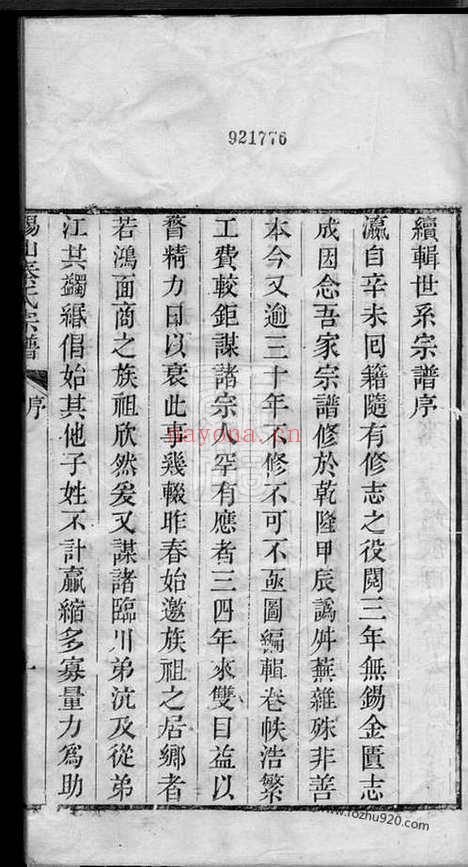 921776
續輯世系宗譜序
瀛自辛未回籍隨有修志之役閱三年無錫金匱志
成因念吾家宗譜修於乾隆甲辰譌舛蕪雜殊非善
本今又逾三十年不修不可不亟圖編輯卷帙浩繁
工費較鉅謀諸宗人罕有應者三四年來雙目益以
瞀精力日以衰此事幾輟昨春始邀族祖之居鄉者
若鴻面商之族祖欣然爰又謀諸臨川弟沆及從弟
江其蠲緡倡始其他子姓不計贏縮多寡量力為助
錫山秦氏宗譜
序
一
nayona.cn
www.fozhu920.com